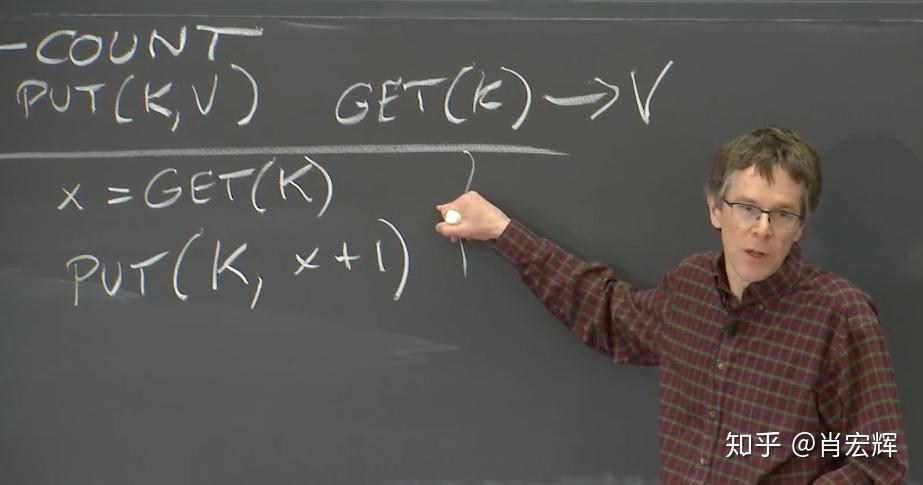 -COUNT
PUT(K,V) GET(K)→V
x=GET(K)
PUT(K, x+1)
知乎 @肖宏辉